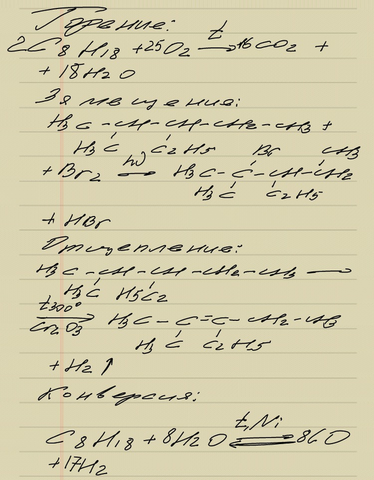 Горение:
2C8H18 +25O2 t→ 16CO2 +
+ 18H2O
Замещение:
H3C - CH - CH - CH2 - CH3 +
H3C C2H5 Br CH3
+ Br2 hν→ H3C - C - CH - CH2
H3C C2H5
+ HBr
Отщепление:
H3C - CH - CH - CH2 - CH3 →
H3C H5C2
t300° Cr2O3→ H3C - C = C - CH2 - CH3
H3C C2H5
+ H2↑
Конверсия:
C8H18 + 8H2O t,Ni⇌ 8CO
+17H2